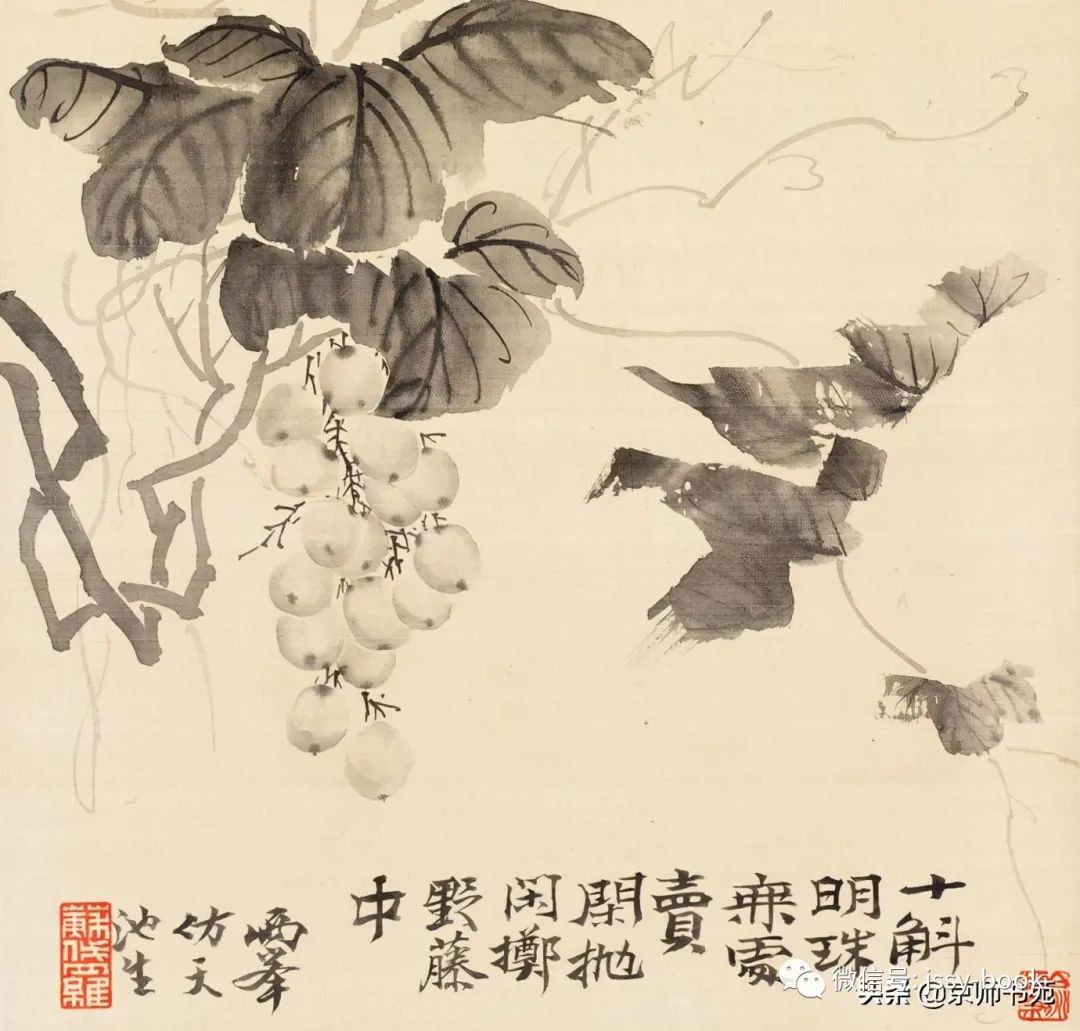 十斛
明珠
無處
賣
閑抛
闲擲
野藤
中
兩峯
仿天
池生
蘇伐羅
微信号: jssy_book
头条 @京师书苑